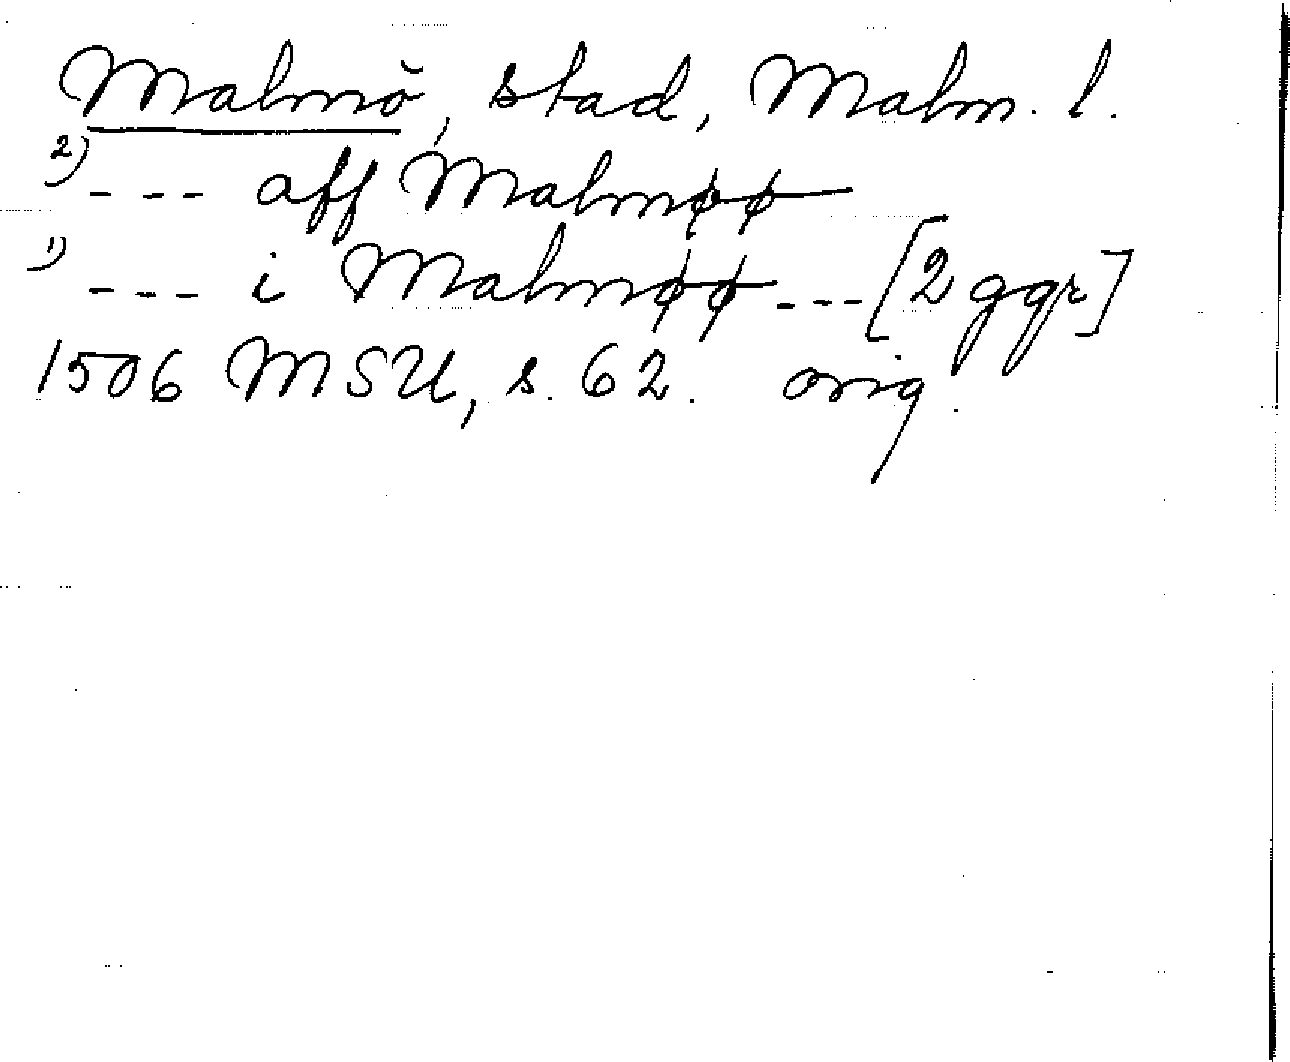 Malmö, stad, Malm. l.
2) --- aff Malmøø
1) --- i Malmøø --- [2 ggr]
1506 MSU, s. 62. orig.